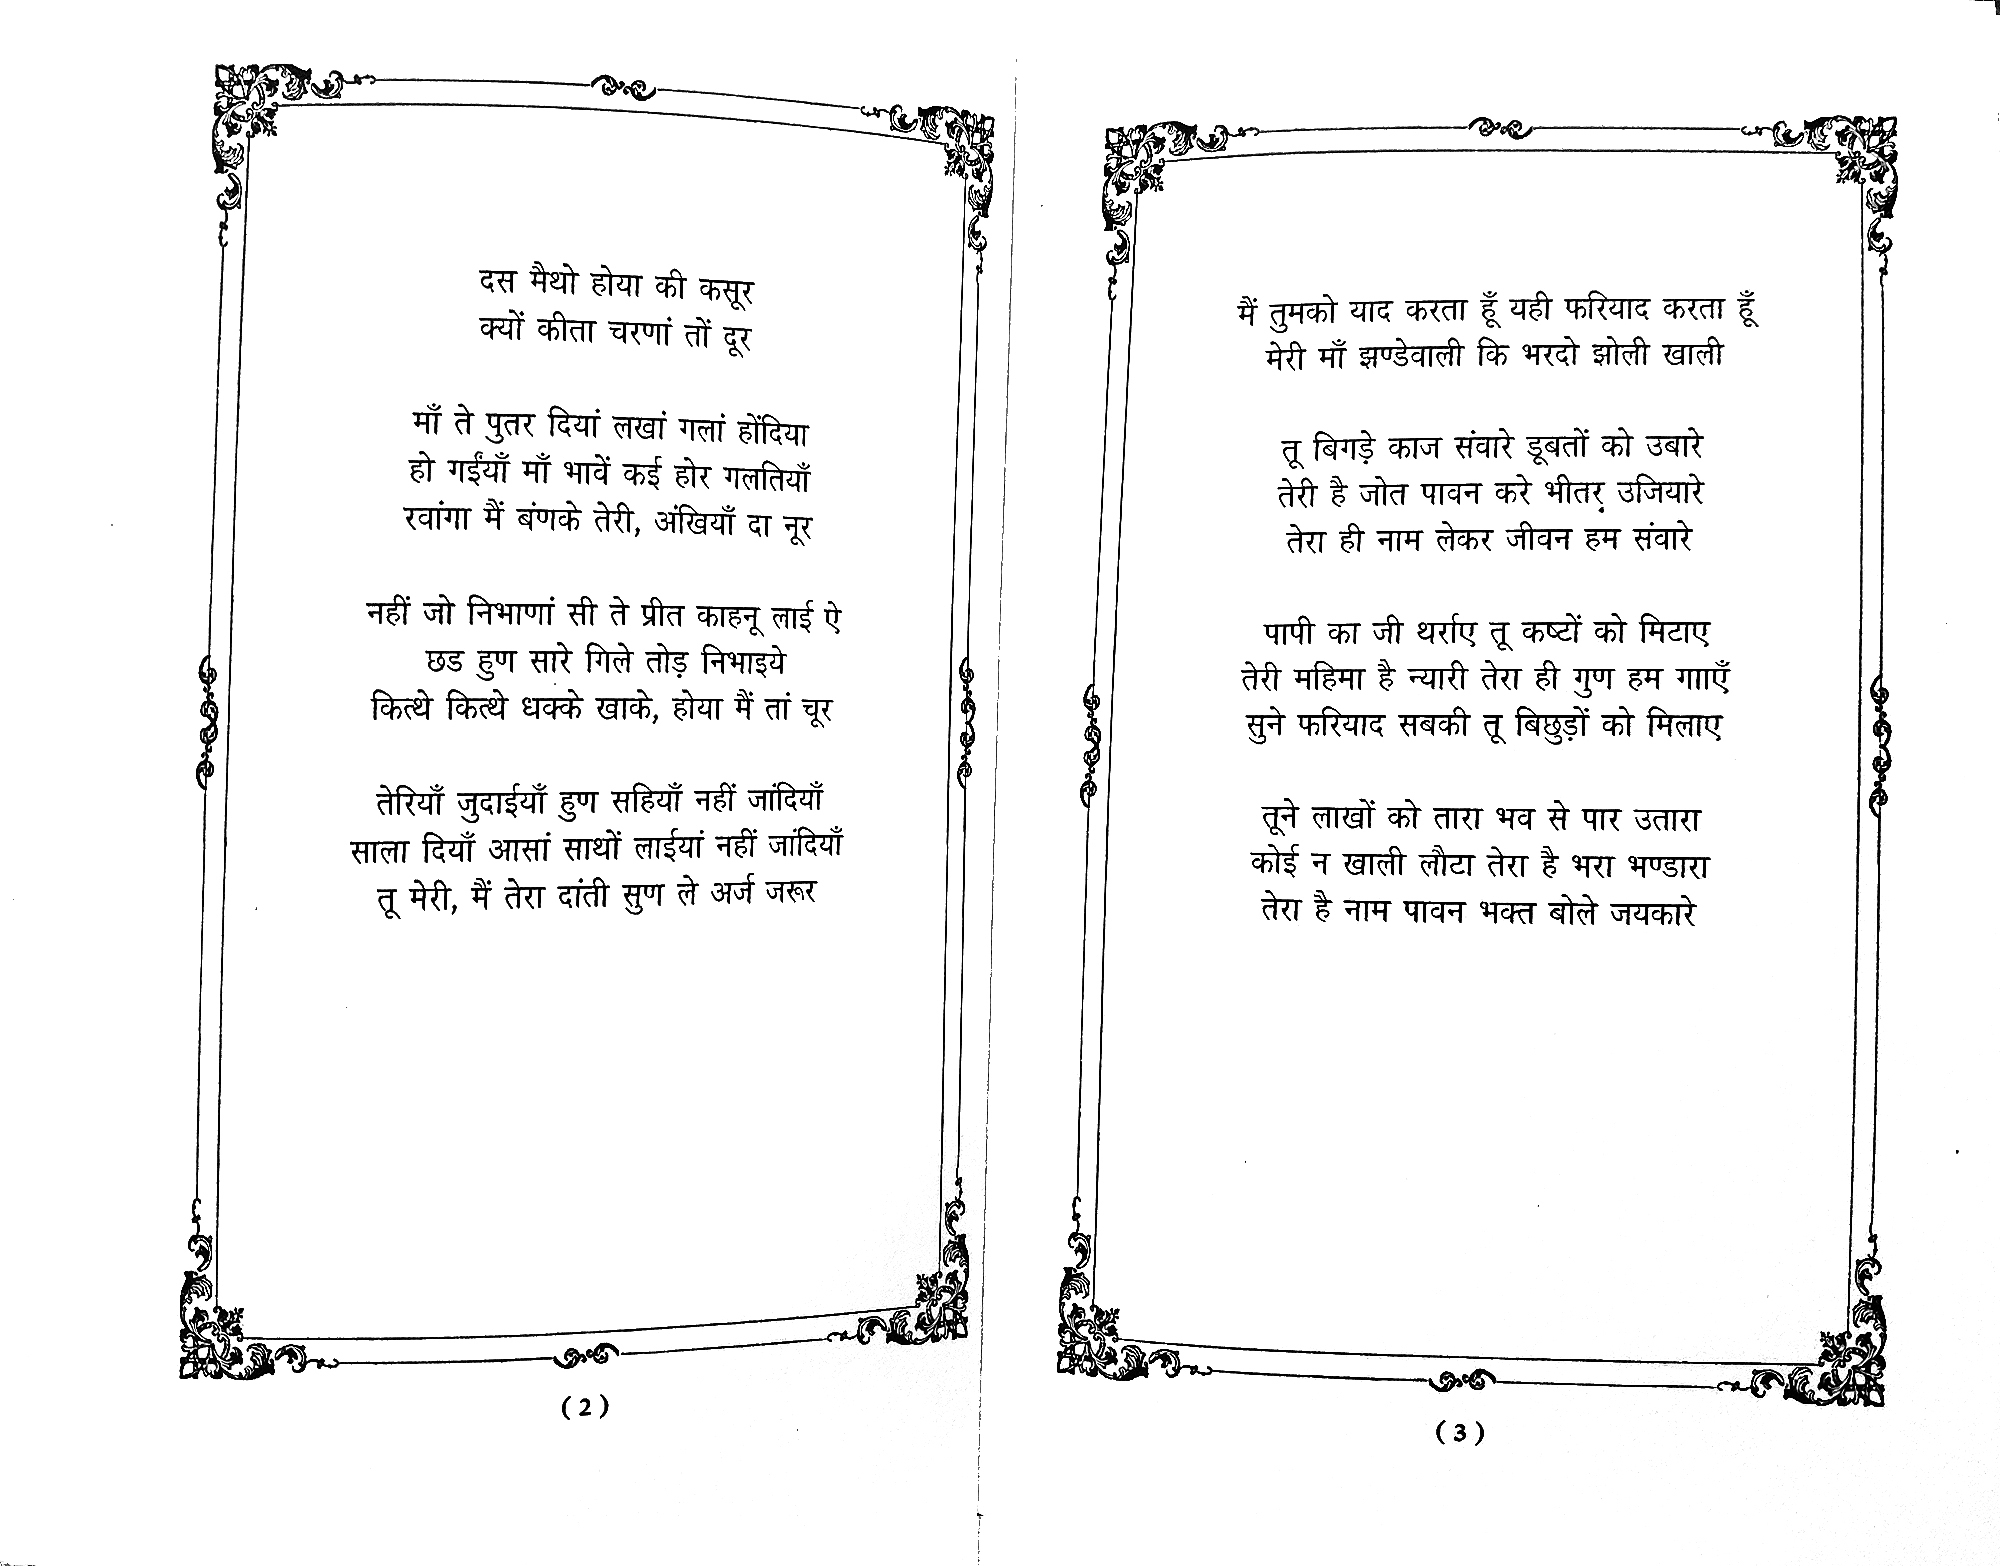 दस मैथो होया की कसूर
क्यों कीता चरणां तों दूर
माँ ते पुतर दियां लखां गलां होंदिया
हो गईंयाँ माँ भावें कई होर गलतियाँ
रवांगा मैं बंणके तेरी, अंखियाँ दा नूर
नहीं जो निभाणां सी ते प्रीत काहनू लाई ऐ
छड हुण सारे गिले तोड़ निभाइये
कित्थे कित्थे धक्के खाके, होया मैं तां चूर
तेरियाँ जुदाईयाँ हुण सहियाँ नहीं जांदियाँ
साला दियाँ आसां साथों लाईयां नहीं जांदियाँ
तू मेरी, मैं तेरा दांती सुण ले अर्ज जरूर
(2)
मैं तुमको याद करता हूँ यही फरियाद करता हूँ
मेरी माँ झण्डेवाली कि भरदो झोली खाली
तू बिगड़े काज संवारे डूबतों को उबारे
तेरी है जोत पावन करे भीतर उजियारे
तेरा ही नाम लेकर जीवन हम संवारे
पापी का जी थर्राए तू कष्टों को मिटाए
तेरी महिमा है न्यारी तेरा ही गुण हम गााएँ
सुने फरियाद सबकी तू बिछुड़ों को मिलाए
तूने लाखों को तारा भव से पार उतारा
कोई न खाली लौटा तेरा है भरा भण्डारा
तेरा है नाम पावन भक्त बोले जयकारे
(3)